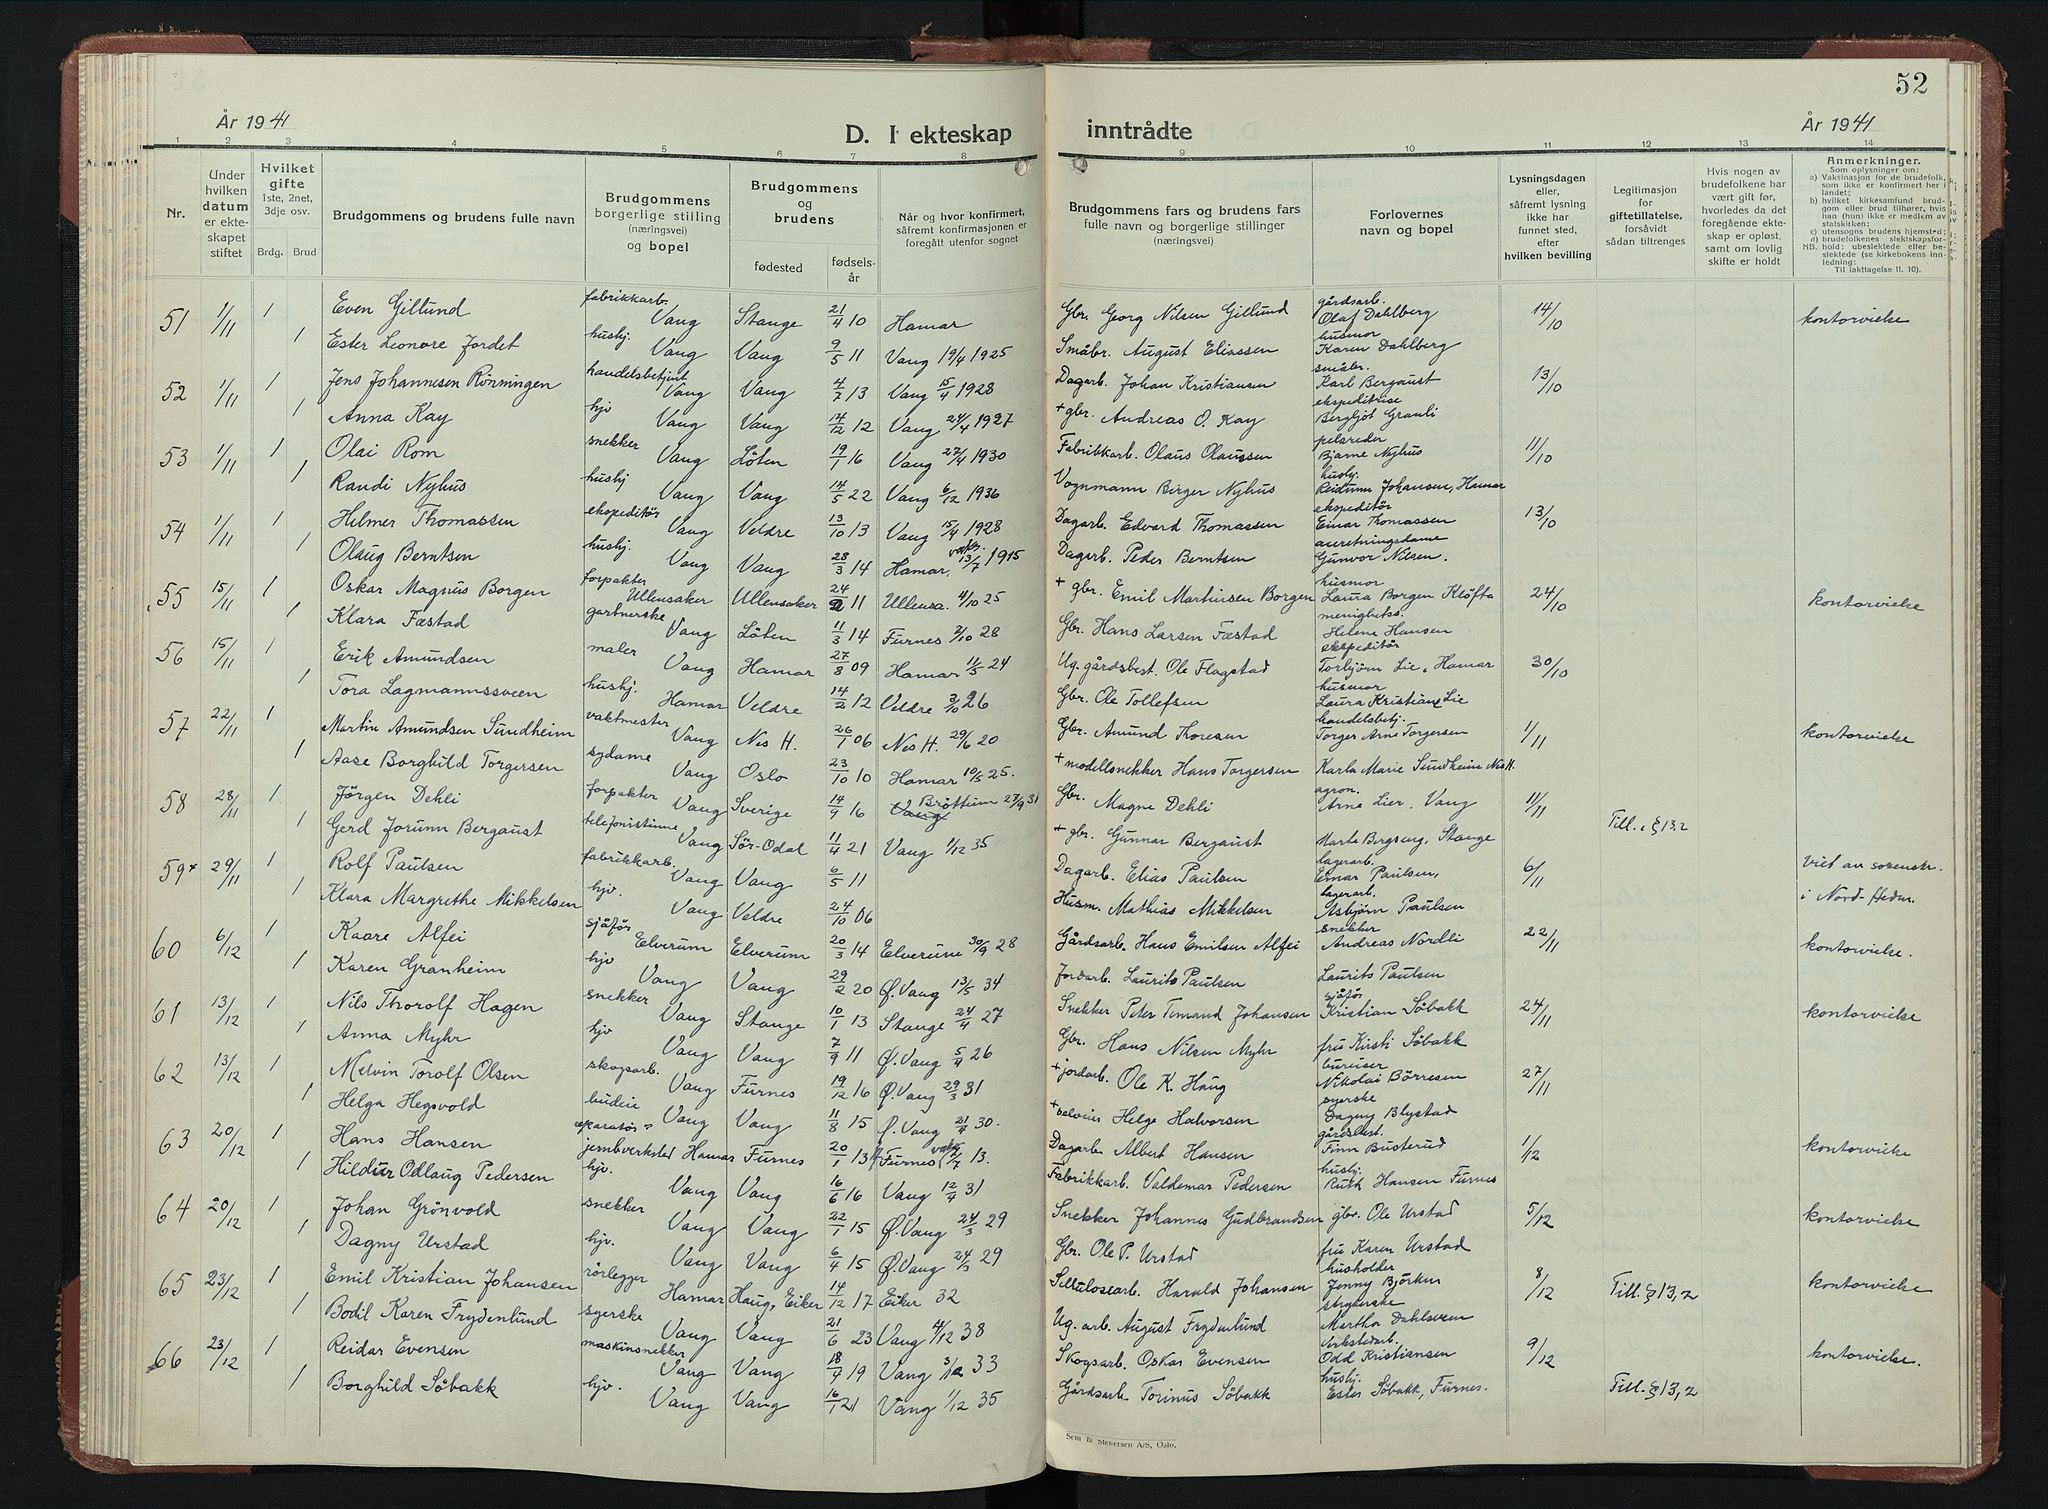 52
År 1941
D. I ekteskap inntrådte
År 1941
1 2 3 4 5 6 7 8 9 10 11 12 13 14
Nr.
Under hvilken datum er ekteskapet stiftet
Hvilket gifte 1ste, 2net, 3dje osv.
Brdg. Brud
Brudgommens og brudens fulle navn
Brudgommens borgerlige stilling (næringsvei) og bopel
Brudgommens og brudens
fødested
fødselsår
Når og hvor konfirmert, såfremt konfirmasjonen er foregått utenfor sognet
Brudgommens fars og brudens fars fulle navn og borgerlige stillinger (næringsvei)
Forlovernes navn og bopel
Lysningsdagen eller, såfremt lysning ikke har funnet sted, efter hvilken bevilling
Legitimasjon for giftetillatelse, forsåvidt sådan tiltrenges
Hvis nogen av brudefolkene har vært gift før, hvorledes da det foregående ekteskap er opløst, samt om lovlig skifte er holdt
Anmerkninger.
Som oplysninger om:
a) Vaksinasjon for de brudefolk, som ikke er konfirmert her i landet;
b) hvilket kirkesamfund brudgom eller brud tilhører, hvis han (hun) ikke er medlem av statskirken;
c) utensogns brudens hjemsted;
d) brudefolkenes slektskapsforhold: ubeslektede eller beslektede (se kirkebokens innledning: Til iakttagelse II. 10).
51 1/11 1 Even Gillund fabrikkarb. Vang Stange 21/4 10 Hamar Gbr. Georg Nilsen Gillund gårdsarb. Olaf Dahlberg 14/10 kontorvielse
1 Ester Leonore Jordet husbj. Vang Vang 9/5 11 Vang 19/4 1925 Småbr. August Eliassen husmor Karen Dahlberg
52 1/11 1 Jens Johannesen Rönningen handelsbetjent Vang Vang 4/7 13 Vang 15/4 1928 Dagarb. Johan Kristiansen småbr. Karl Bergaust 13/10
1 Anna Kay hjv Vang Vang 14/12 12 Vang 24/4 1927 + gbr. Andreas O. Kay ekspeditrise Bergljot Grauli
53 1/11 1 Olai Rom snekker Vang Löten 19/1 16 Vang 27/4 1930 Fabrikkarb. Olaus Olaussen pelsreder Bjarne Nyhus 11/10
1 Randi Nyhus husbj Vang Vang 14/5 22 Vang 6/12 1936 Vognmann Birger Nyhus husbj Reidunn Johansen, Hamar
54 1/11 1 Helmer Thomassen ekspeditör Vang Veldre 13/10 13 Vang 15/4 1928 Dagarb. Edvard Thomassen ekspeditör Einar Thomassen 13/10
1 Olaug Berntsen husbj. Vang Vang 28/3 14 Hamar, vaks. 13/7 1915 Dagarb. Peder Berntsen anretningsdame Gunvor Nilsen.
55 15/11 1 Oskar Magnus Borgen forpakter Ullensaker Ullensaker 24/2 11 Ullensa. 4/10 25 + gbr. Emil Martinsen Borgen husmor Laura Borgen Klöfta 24/10 kontorvielse
1 Klara Fæstad gartnerske Vang Löten 11/3 14 Furnes 7/10 28 Gbr. Hans Larsen Fæstad menighetss. Helene Hansen
56 15/11 1 Erik Amundsen maler Vang Hamar 27/8 09 Hamar 11/5 24 Ug. gårdsbest. Ole Flagstad ekspeditör Torbjörn Lie, Hamar 30/10
1 Tora Lagmannssveen husbj. Hamar Veldre 14/2 12 Veldre 3/10 26 Gbr. Ole Tollefsen husmor Laura Kristiane Lie
57 22/11 1 Martin Amundsen Sundheim vaktmester Vang Nes H. 26/1 06 Nes H. 29/6 20 Gbr. Amund Thoresen handelsbetj. Torger Arne Torgersen 1/11 kontorvielse
1 Aase Borghild Torgersen sydame Vang Oslo 23/10 10 Hamar 10/5 25. + modellsnekker Hans Torgersen Karla Marie Sundheim Nes H.
58 28/11 1 Jörgen Dehli forpakter Vang Sverige 14/9 16 Vang Bröttum 27/9 31 Gbr. Magne Dehli agron. Arne Lier, Vang 11/11
1 Gerd Jorunn Bergaust telefonistinne Vang Sör-Odal 11/4 21 Vang 1/12 35 + gbr. Gunnar Bergaust Marte Bergseng, Stange Till. § 13.2
59 x 29/11 1 Rolf Paulsen fabrikkarb. Vang Vang 6/5 11 Dagarb. Elias Paulsen lagerarb. Einar Paulsen, 6/11 viet av sorenskr.
1 Klara Margrethe Mikkelsen hjv. Vang Veldre 24/10 06 Husm. Mathias Mikkelsen lagerarb. Asbjörn Paulsen i Nord-Hedm.
60 6/12 1 Kaare Alfei sjåför Elverum Elverum 20/3 14 Elverum 30/9 28 Gårdsarb. Hans Emilsen Alfei snekker Andreas Nordli 22/11 kontorvielse.
1 Karen Granheim hjv Vang Vang 29/2 20 Ø. Vang 13/5 34 Jordarb. Laurits Paulsen Laurits Paulsen
61 13/12 1 Nils Thorolf Hagen snekker Vang Stange 10/1 13 Stange 24/4 27 Snekker Peter Timand Johansen sjåför Kristian Söbakk 24/11 kontorvielse
1 Anna Myhr hjv Vang Vang 7/9 11 Ø. Vang 5/4 26 Gbr. Hans Nilsen Myhr fru Kirsti Söbakk
62 13/12 1 Melvin Torolf Olsen skogsarb. Vang Furnes 19/12 16 Ø. Vang 29/3 31 + jordarb. Ole K. Haug Nikolai Börresen 27/11
1 Helga Hegsvold budeie Vang Vang 11/8 15 Ø. Vang 21/4 30. + Helge Halvorsen syerske Dagny Blystad
63 20/12 1 Hans Hansen reparatör jernbverksted Hamar Furnes 20/1 13 Furnes vaks 13. Dagarb. Albert Hansen gårdsbest. Finn Busterud 1/12 kontorvielse
1 Hildur Odlaug Pedersen hjv. Vang Vang 16/6 16 Vang 12/4 31 Fabrikkarb. Valdemar Pedersen husbj. Ruth Hansen Furnes
64 20/12 1 Johan Grönvold snekker Vang Vang 22/1 15 Ø. Vang 24/3 29 Snekker Johannes Gudbrandsen gbr. Ole Urstad 5/12 kontorvielse
1 Dagny Urstad hjv. Vang Vang 6/4 15 Ø. Vang 24/3 29 Gbr. Ole P. Urstad fru Karen Urstad
65 23/12 1 Emil Kristian Johansen rörlegger Hamar Haug, Eiker 14/12 17 Eiker 32 Cellulosearb. Harald Johansen husholder Jenny Björken 8/12 Till. § 13,2 kontorvielse
1 Bodil Karen Frydenlund syerske Vang Vang 21/6 23 Vang 4/12 38 Ug. arb. August Frydenlund strykerske Martha Dahlsveen
66 23/12 1 Reidar Evensen maskinsnekker Vang Vang 18/9 19 Vang 3/12 33 Skogsarb. Oskar Evensen Odd Kristiansen 9/12 kontorvielse.
1 Borghild Söbakk hjv. Vang Vang 16/1 21 Vang 1/12 35 Gårdsarb. Torinus Söbakk husbj. Ester Söbakk, Furnes. Till. § 13,2
Sem & Stenersen A/S, Oslo.